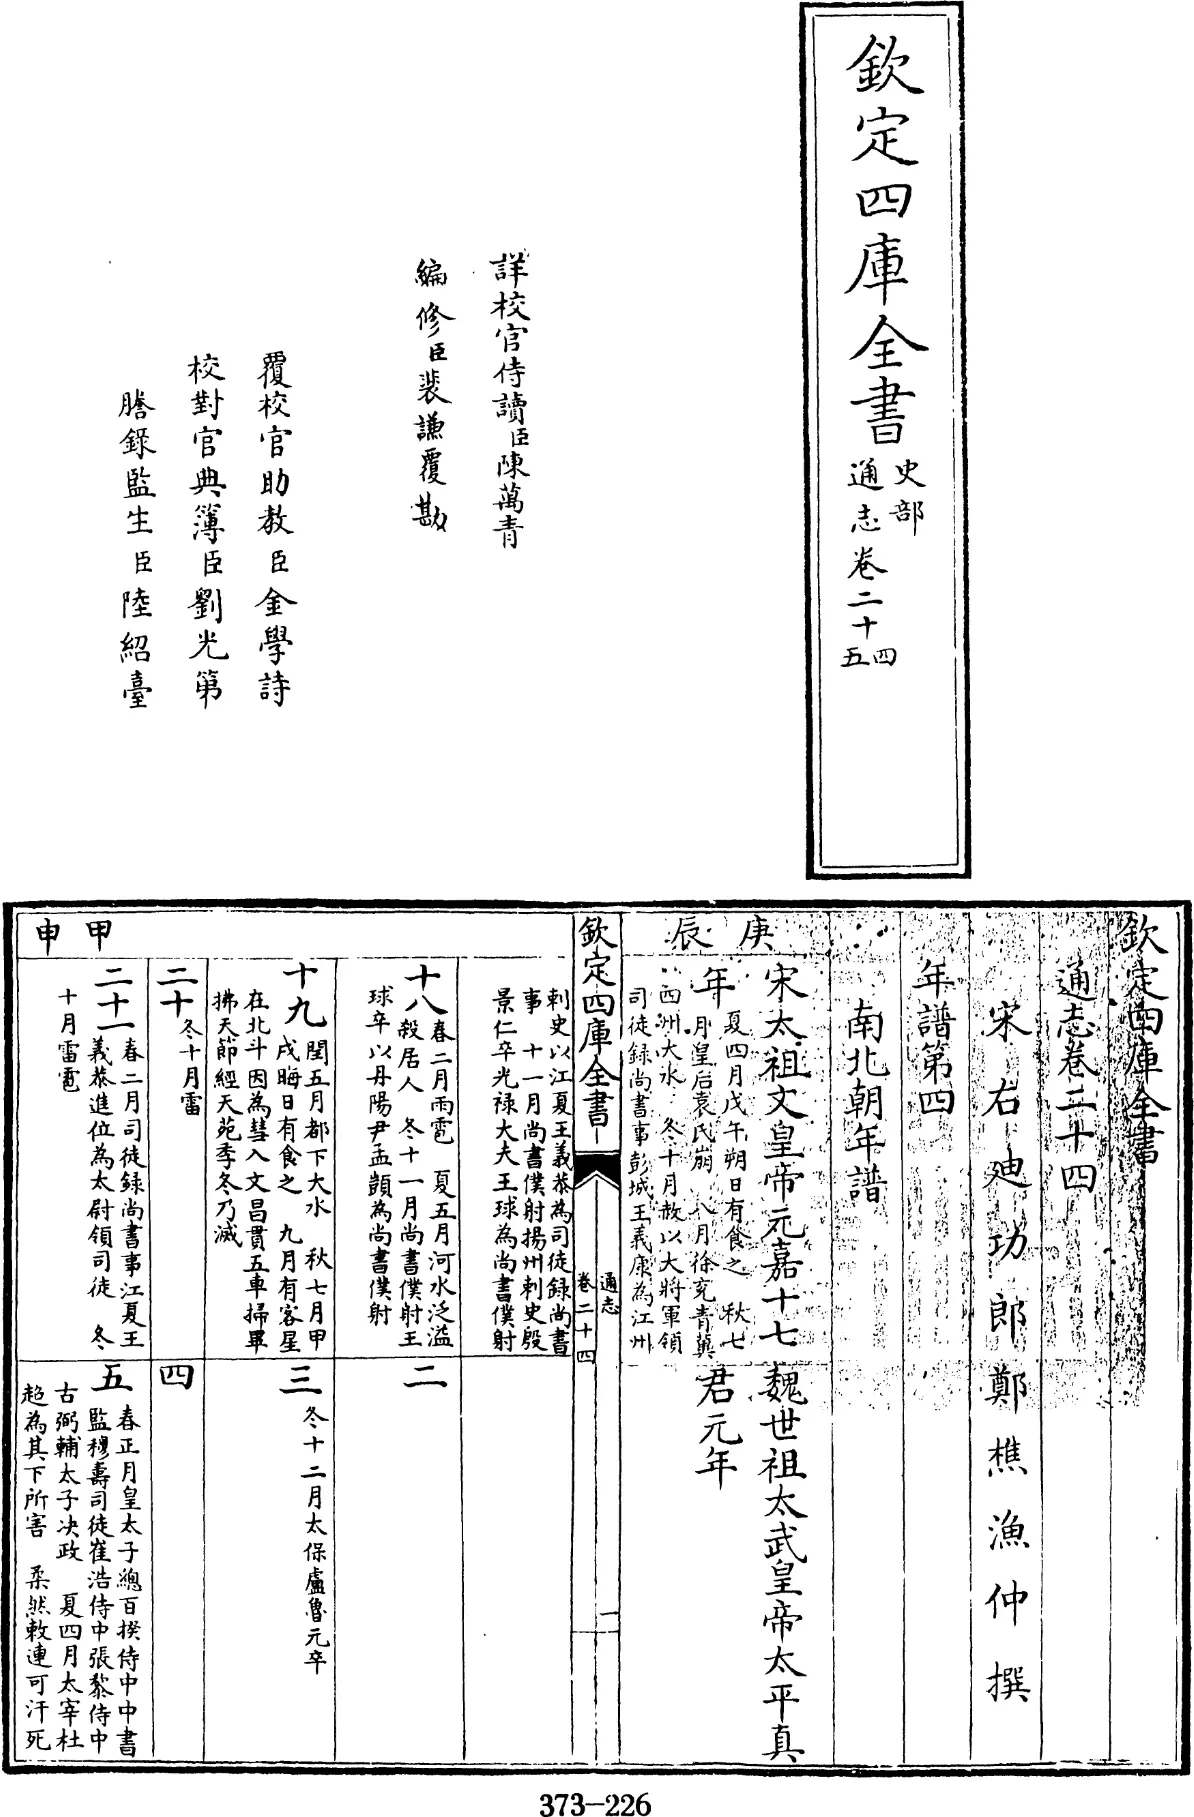 欽定四庫全書
史部
通志卷二十四
五
詳校官侍讀臣陳萬青
編修臣裴謙覆勘
覆校官助教臣金學詩
校對官典簿臣劉光第
謄錄監生臣陸紹臺
欽定四庫全書
通志卷二十四
宋右廸功郎鄭樵漁仲撰
年譜第四
南北朝年譜
庚辰
宋太祖文皇帝元嘉十七
年
夏四月戊午朔日有食之 秋七
月皇后袁氏崩 八月徐兗青冀
四州大水 冬十月赦以大將軍領
司徒録尚書事彭城王義康為江州
魏世祖太武皇帝太平真
君元年
欽定四庫全書
通志
卷二十四
一
刺史以江夏王義恭為司徒録尚書
事 十一月尚書僕射揚州刺史殷
景仁卒光禄大夫王球為尚書僕射
十八
春二月雨雹 夏五月河水泛溢
殺居人 冬十一月尚書僕射王
球卒以丹陽尹孟顗為尚書僕射
二
十九
閏五月都下大水 秋七月甲
戌晦日有食之 九月有客星
在北斗因為彗入文昌貫五車掃畢
拂天節經天苑季冬乃滅
三
冬十二月太保盧魯元卒
二十
冬十月雷
四
甲申
二十一
春二月司徒録尚書事江夏王
義恭進位為太尉領司徒 冬
十月雷雹
五
春正月皇太子總百揆侍中中書
監穆壽司徒崔浩侍中張黎侍中
古弼輔太子决政 夏四月太宰杜
超為其下所害 柔然敕連可汗死
373-226